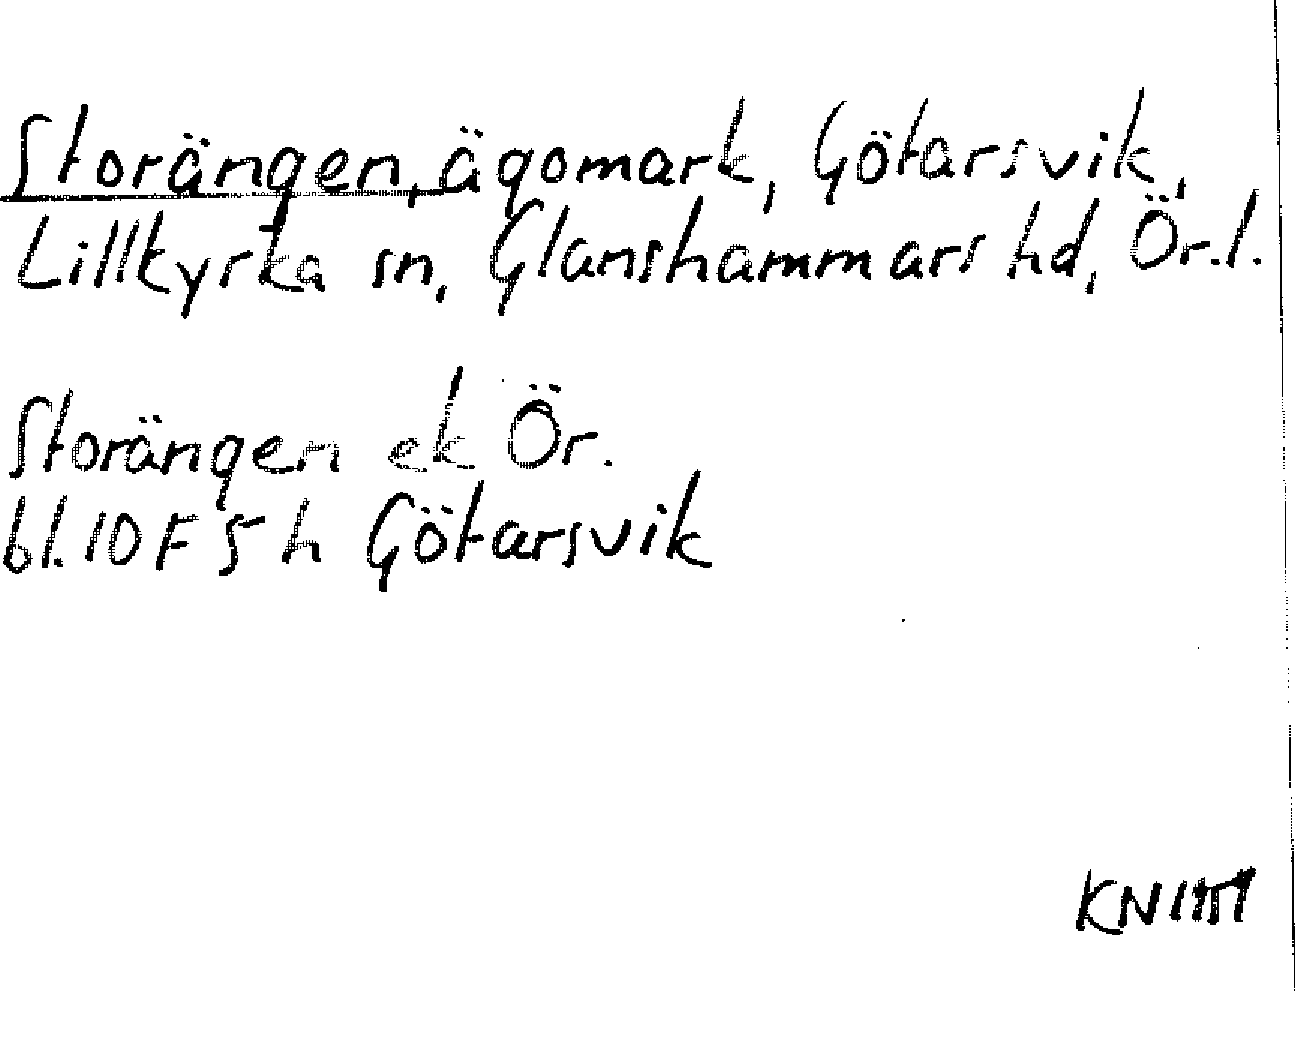 Storängen, ägomark, Götarsvik,
Lillkyrka sn, Glanshammars hd, Ör.l.
Storängen ek Ör.
bl. 10F 5h Götarsvik